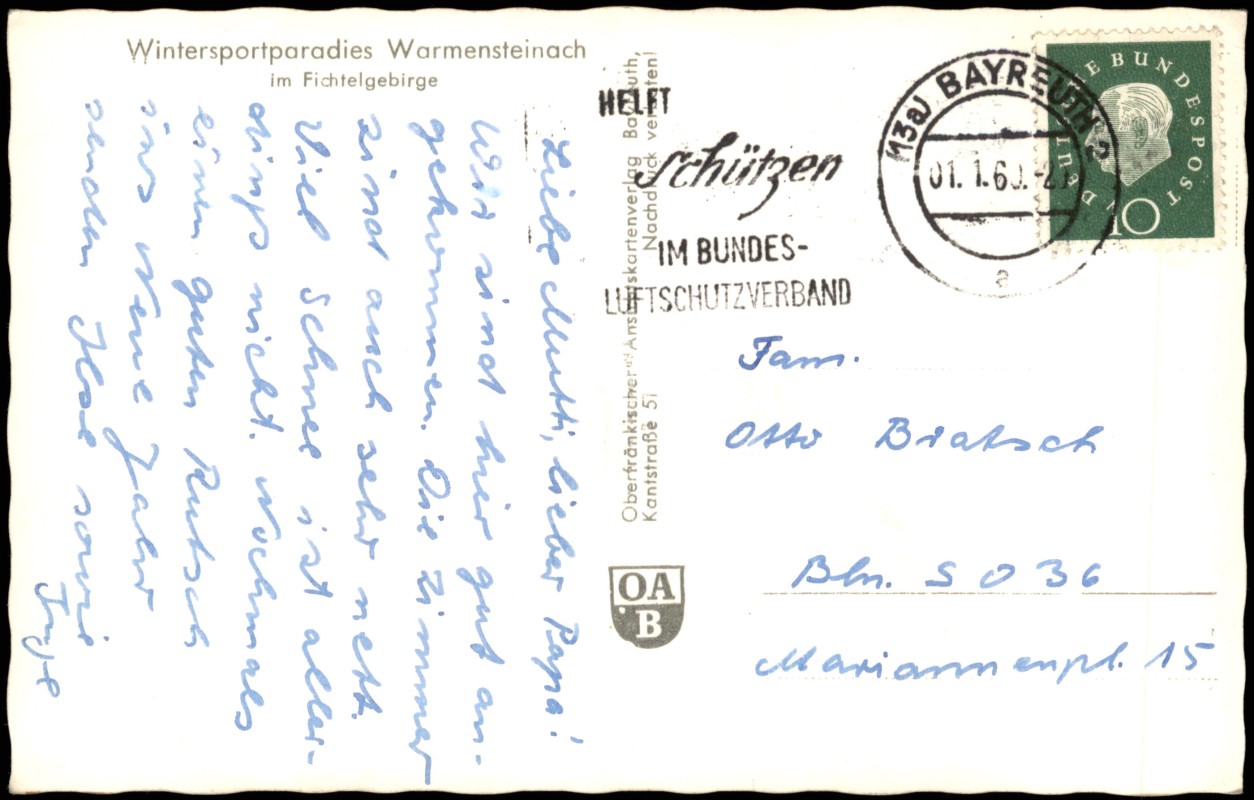 Wintersportparadies Warmensteinach
im Fichtelgebirge
Liebe Mutti, lieber Papa!
Wir sind hier gut an-
gekommen. Die Zimmer
sind auch sehr nett.
Viel Schnee ist aller-
dings nicht. Nochmals
einen guten Rutsch
ins Neue Jahr
senden Ilse sowie
Inge
Oberfränkischer Ansichtskartenverlag Bayreuth,
Kantstraße 51 Nachdruck verboten!
OA
B
HELFT
schützen
IM BUNDES-
LUFTSCHUTZVERBAND
(13a) BAYREUTH 2
01.1.60.-21
a
DEUTSCHE BUNDESPOST
10
Fam.
Otto Bratsch
Bln. SO 36
Mariannenpl. 15